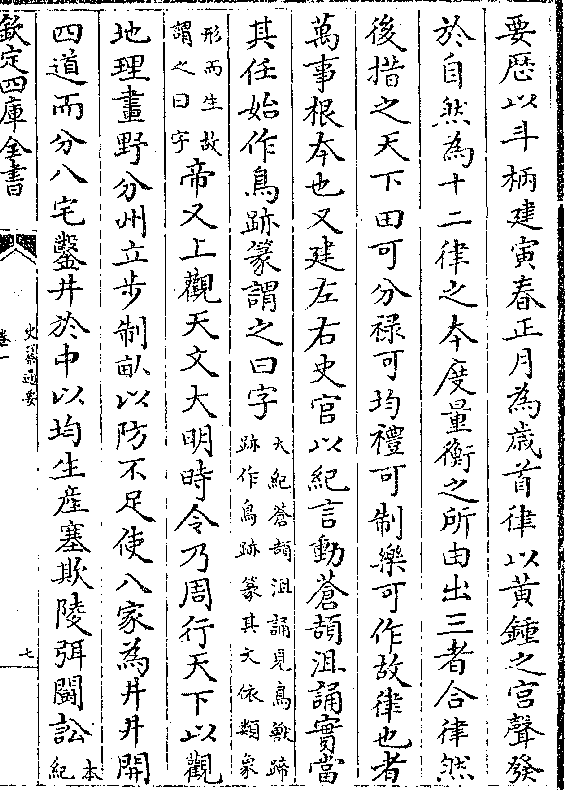 要歴以斗柄建寅春正月為歳首律以黃鍾之宮聲發
於自然為十二律之本度量衡之所由出三者合律然
後措之天下田可分禄可均禮可制樂可作故律也者
萬事根本也又建左右史官以紀言動蒼頡沮誦實當
其任始作鳥跡篆謂之曰字
大紀蒼頡沮誦見鳥獸蹄
跡作鳥跡篆其文依類象
形而生故
謂之曰字
帝又上觀天文大明時令乃周行天下以觀
地理畫野分州立歩制畝以防不足使八家為井井開
四道而分八宅鑿井於中以均生産塞欺陵弭鬬訟
本
紀
欽定四庫全書
史纂通要
卷一
七